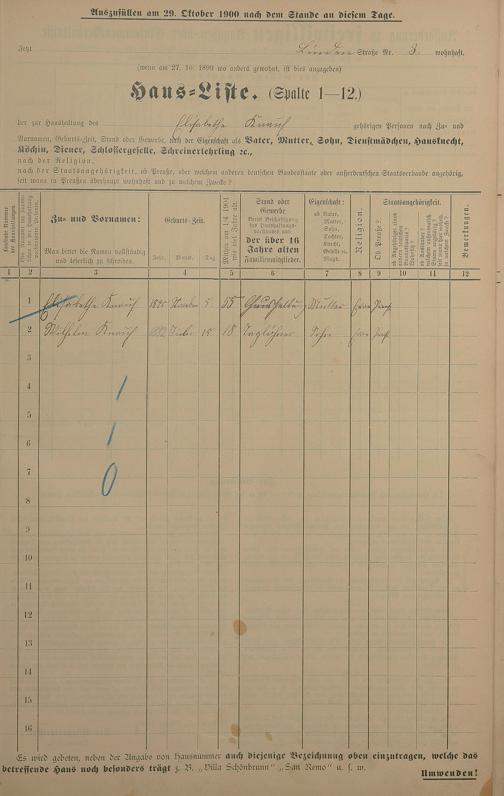 Auszufüllen am 29. Oktober 1900 nach dem Stande an diesem Tage.
Jetzt Linden Straße Nr. 3. wohnhaft.
(wenn am 27. 10. 1899 wo anders gewohnt, ist dies anzugeben)
Haus-Liste. (Spalte 1—12.)
der zur Haushaltung des Elisabethe Knauf gehörigen Personen nach Zu- und
Vornamen, Geburts-Zeit, Stand oder Gewerbe, nach der Eigenschaft als Vater, Mutter, Sohn, Dienstmädchen, Hausknecht,
Köchin, Diener, Schlossergeselle, Schreinerlehrling ꝛc.,
nach der Religion,
nach der Staatsangehörigkeit, ob Preuße, oder welchem anderen deutschen Bundesstaate oder außerdeutschen Staatsverbande angehörig,
seit wann in Preußen überhaupt wohnhaft und zu welchem Zwecke?
Zu- und Vornamen:
Man bittet die Namen vollständig und leserlich zu schreiben.
Geburts-Zeit.
Jahr. Monat. Tag.
Stand oder Gewerbe
der über 16 Jahre alten Familienmitglieder.
Eigenschaft:
ob Vater, Mutter, Sohn, Tochter, Knecht, Geselle od. Magd.
Religion.
Staatsangehörigkeit.
Ob Preuße?
Bemerkungen.
1 2 3 4 5 6 7 8 9 10 11 12
1 Elisabethe Knauf 5. 55 Mutter
2 Wilhelm Knauf 15 18 Taglöhner Sohn
3
4
5
6
7
8
9
10
11
12
13
14
15
16
1
1
0
Es wird gebeten, neben der Angabe von Hausnummer auch diejenige Bezeichnung oben einzutragen, welche das
betreffende Haus noch besonders trägt z. B. „Villa Schönbrunn" „San Remo" u. s. w.
Umwenden!